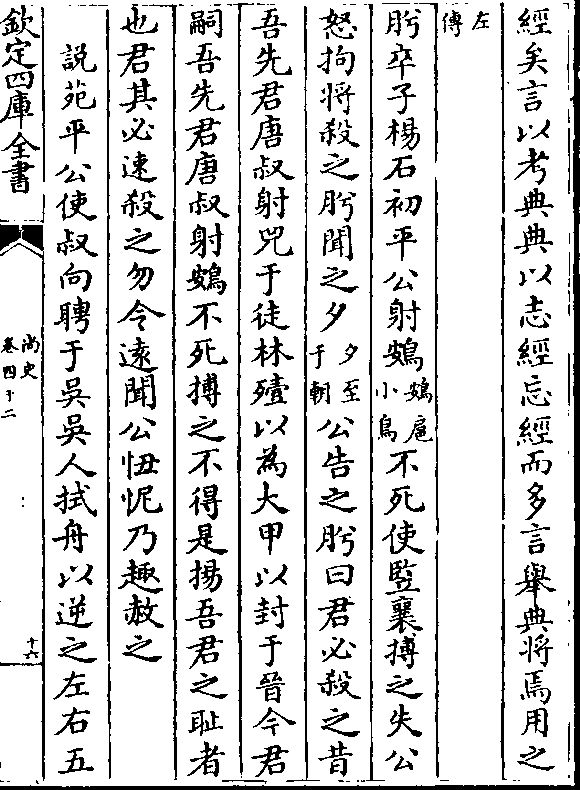 經矣言以考典典以志經忘經而多言舉典將焉用之
左
傳
肸卒子楊石初平公射鴳
鴳扈
小鳥
不死使監襄搏之失公
怒拘將殺之肸聞之夕
夕至
于朝
公告之肸曰君必殺之昔
吾先君唐叔射兕于徒林殪以為大甲以封于晉今君
嗣吾先君唐叔射鴳不死搏之不得是揚吾君之耻者
也君其必速殺之勿令遠聞公忸怩乃趣赦之
說苑平公使叔向聘于吳吳人拭舟以逆之左右五
欽定四庫全書
尚史
卷四十二
十六